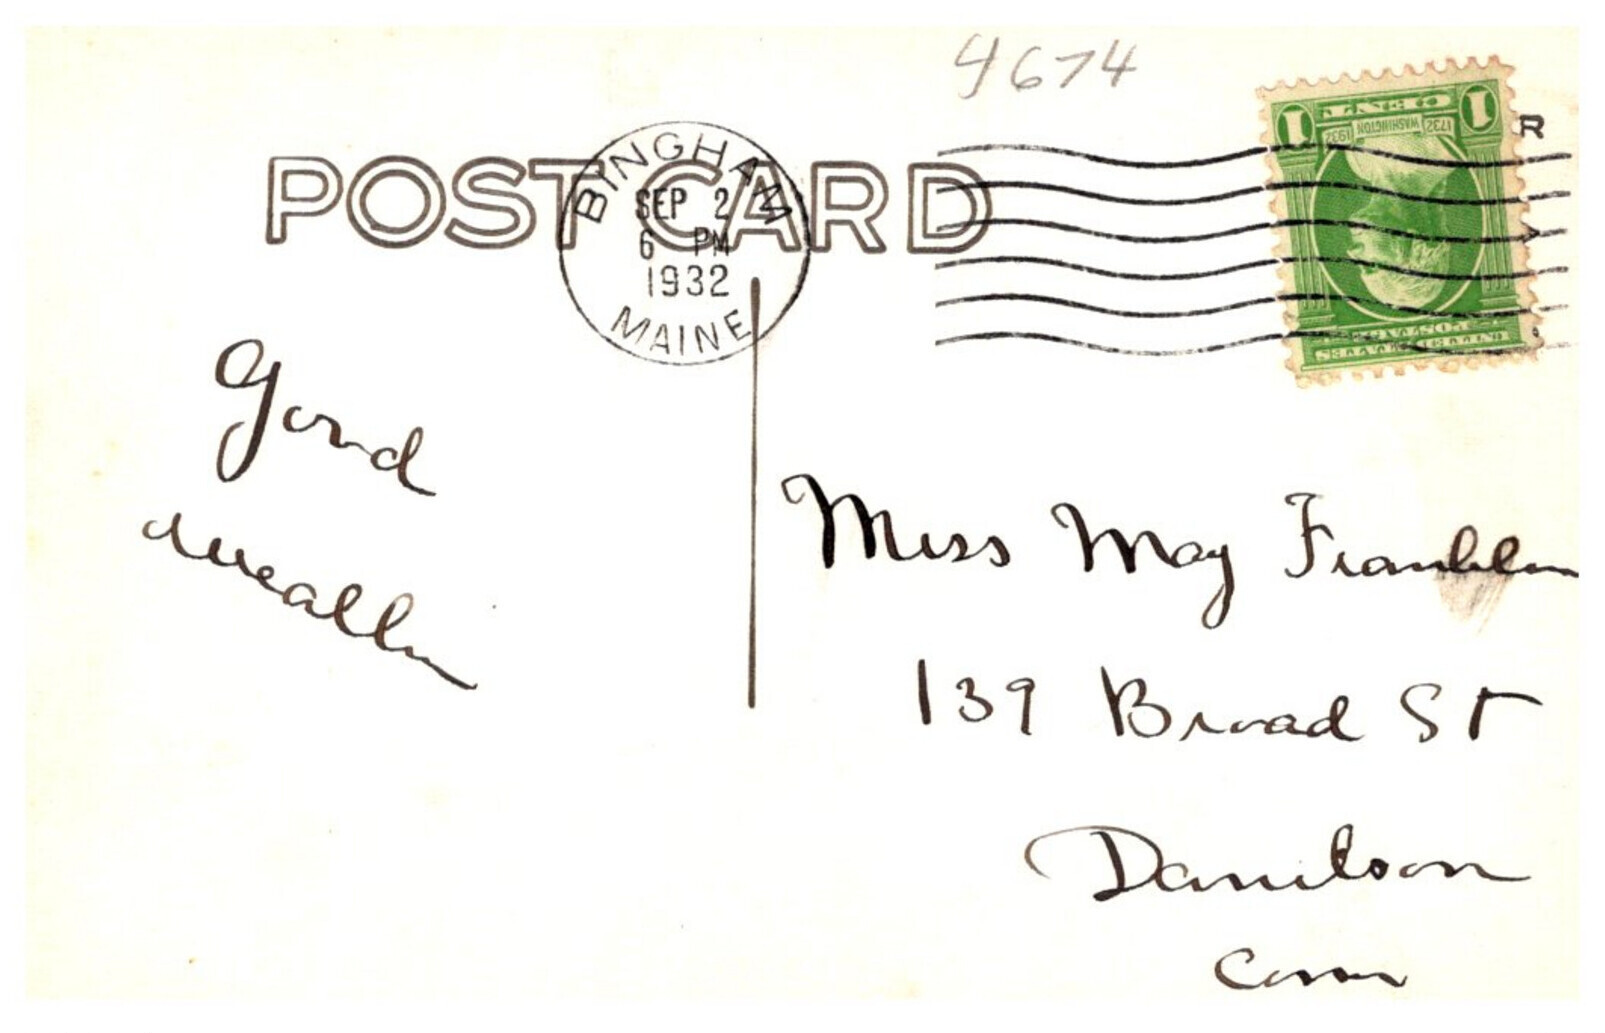 4674
POST CARD
BINGHAM
SEP 2
6 PM
1932
MAINE
1 CENT 1
1732 WASHINGTON 1932
UNITED STATES
POSTAGE
R
Good
Miss May Franklin
139 Broad St
Danielson
Conn